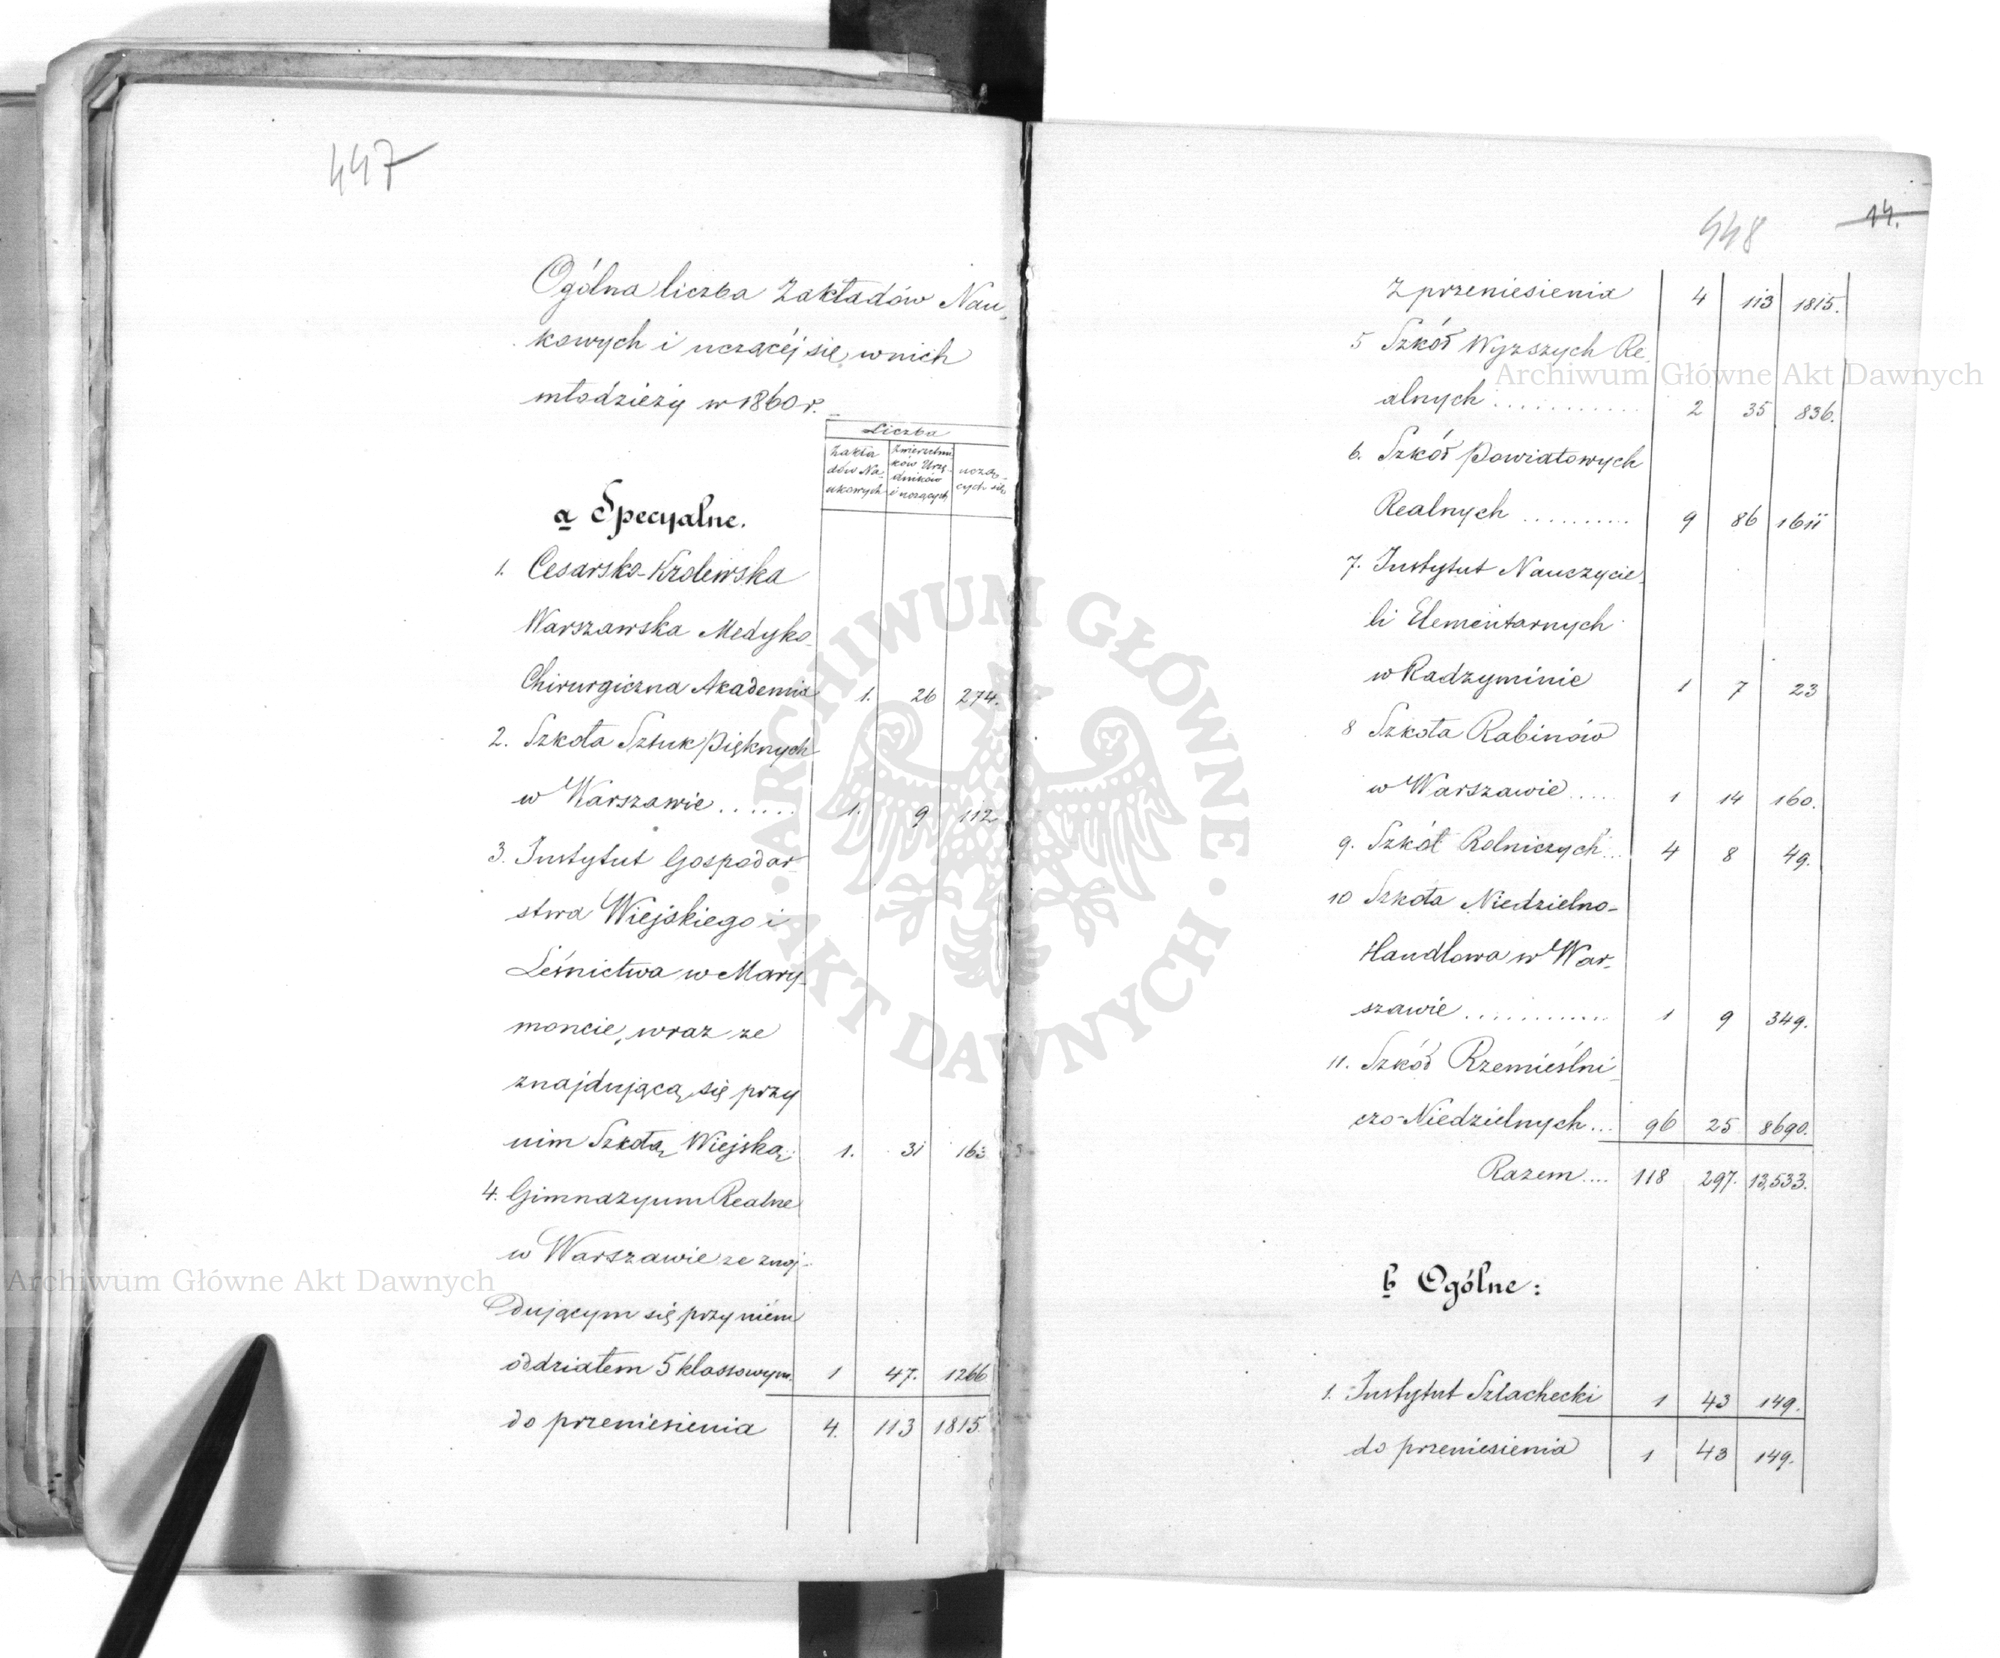 447
Ogólna liczba Zakładów Nau-
kowych i uczącéj się w nich
młodzieży w 1860 r.
Liczba
Zakła
dów Na-
ukowych
Zwierzchni
ków Urzę-
dników
i uczących
uczą-
cych się
a Specyalne.
1. Cesarsko-Królewska
Warszawska Medyko-
Chirurgiczna Akademia 1. 26 274.
2. Szkoła Sztuk Pięknych
w Warszawie ...... 1. 9 112
3. Instytut Gospodar-
stwa Wiejskiego i
Leśnictwa w Mary-
moncie, wraz ze
znajdującą się przy
nim Szkołą Wiejską 1. 31 163
4. Gimnazyum Realne
w Warszawie ze znaj-
dującym się przy niém
oddziałem 5 klassowym. 1 47. 1266
do przeniesienia 4. 113 1815.
448
14.
Z przeniesienia 4 113 1815.
5 Szkół Wyższych Re-
alnych ............ 2 35 836.
6. Szkół Powiatowych
Realnych .......... 9 86 1611
7. Instytut Nauczycie-
li Elementarnych
w Radzyminie 1 7 23
8 Szkoła Rabinów
w Warszawie ..... 1 14 160.
9. Szkół Rolniczych ... 4 8 49.
10 Szkoła Niedzielno-
Handlowa w War-
szawie ............ 1 9 349.
11. Szkół Rzemieślni-
czo-Niedzielnych ... 96 25 8690.
Razem .... 118 297. 13,533.
b Ogólne:
1. Instytut Szlachecki 1 43 149.
do przeniesienia 1 43 149.
Archiwum Główne Akt Dawnych
Archiwum Główne Akt Dawnych
ARCHIWUM GŁÓWNE · AKT DAWNYCH ·